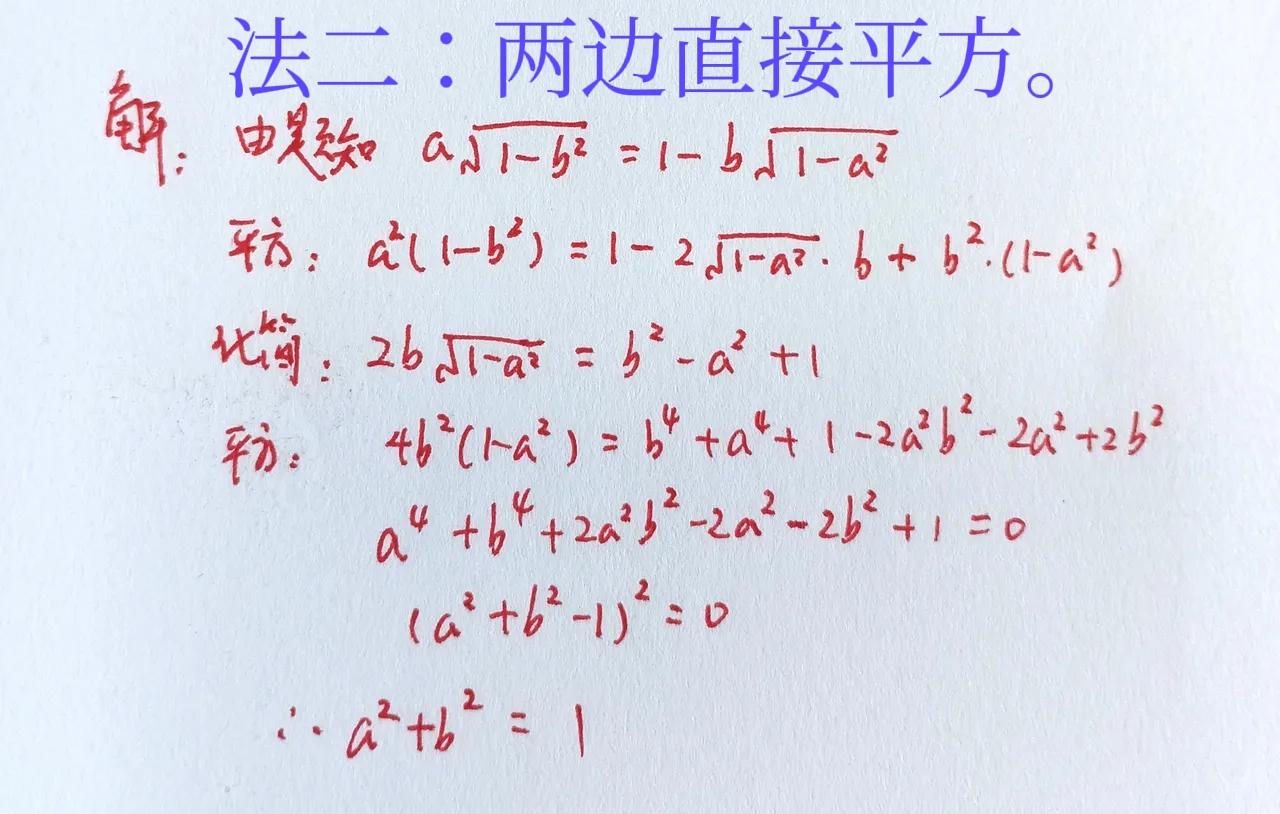 法二：两边直接平方。
解: 由题知 a√(1-b²) = 1-b√(1-a²)
平方: a²(1-b²) = 1-2√(1-a²)·b + b²·(1-a²)
化简: 2b√(1-a²) = b²-a²+1
平方: 4b²(1-a²) = b⁴+a⁴+1-2a²b²-2a²+2b²
a⁴+b⁴+2a²b²-2a²-2b²+1=0
(a²+b²-1)²=0
∴ a²+b² = 1